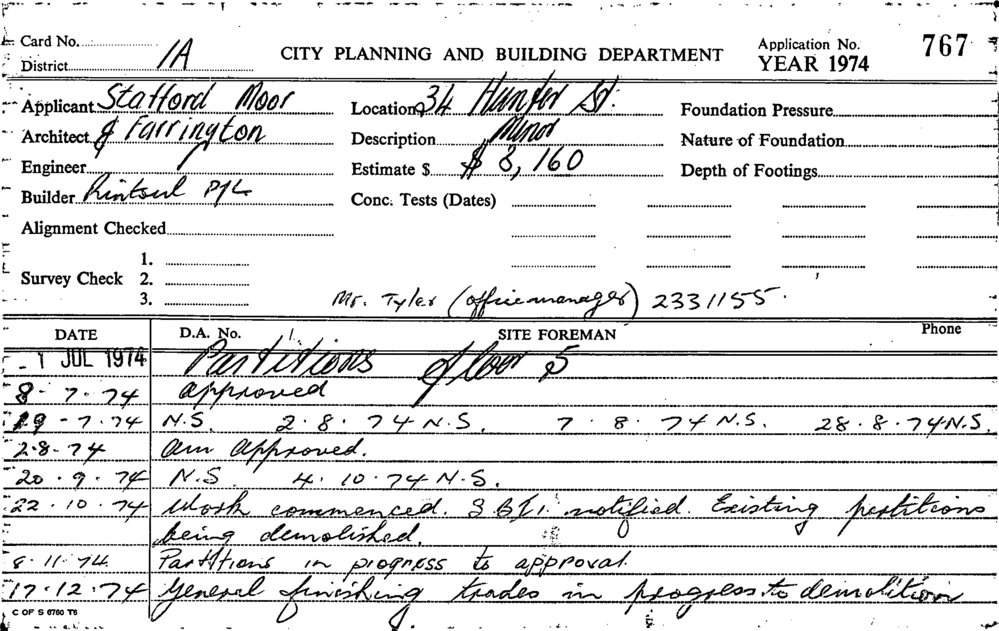 Card No.
District 1A
CITY PLANNING AND BUILDING DEPARTMENT
Application No. 767
YEAR 1974
Applicant Stafford Moor
Architect & Farrington
Engineer
Builder Rintoul P/L
Alignment Checked
Survey Check 1.
2.
3.
Location 34 Hunter St.
Description Minor
Estimate $ $ 8,160
Conc. Tests (Dates)
Foundation Pressure
Nature of Foundation
Depth of Footings
Mr. Tyler (office manager) 2331155.
DATE D.A. No. SITE FOREMAN Phone
- 1 JUL 1974 Partitions floor 5
8 - 7. 74 approved
19 - 7. 74 N.S. 2. 8. 74 N.S. 7. 8. 74 N.S. 28. 8. 74 N.S.
2. 8. 74 Am Approved.
20. 9. 74 N.S 4. 10. 74 N.S.
22. 10. 74 Work commenced. notified. Existing partitions
being demolished.
8. 11. 74 Partitions in progress to approval.
17. 12. 74 General finishing trades in progress to demolition
C OF S 6760 T6